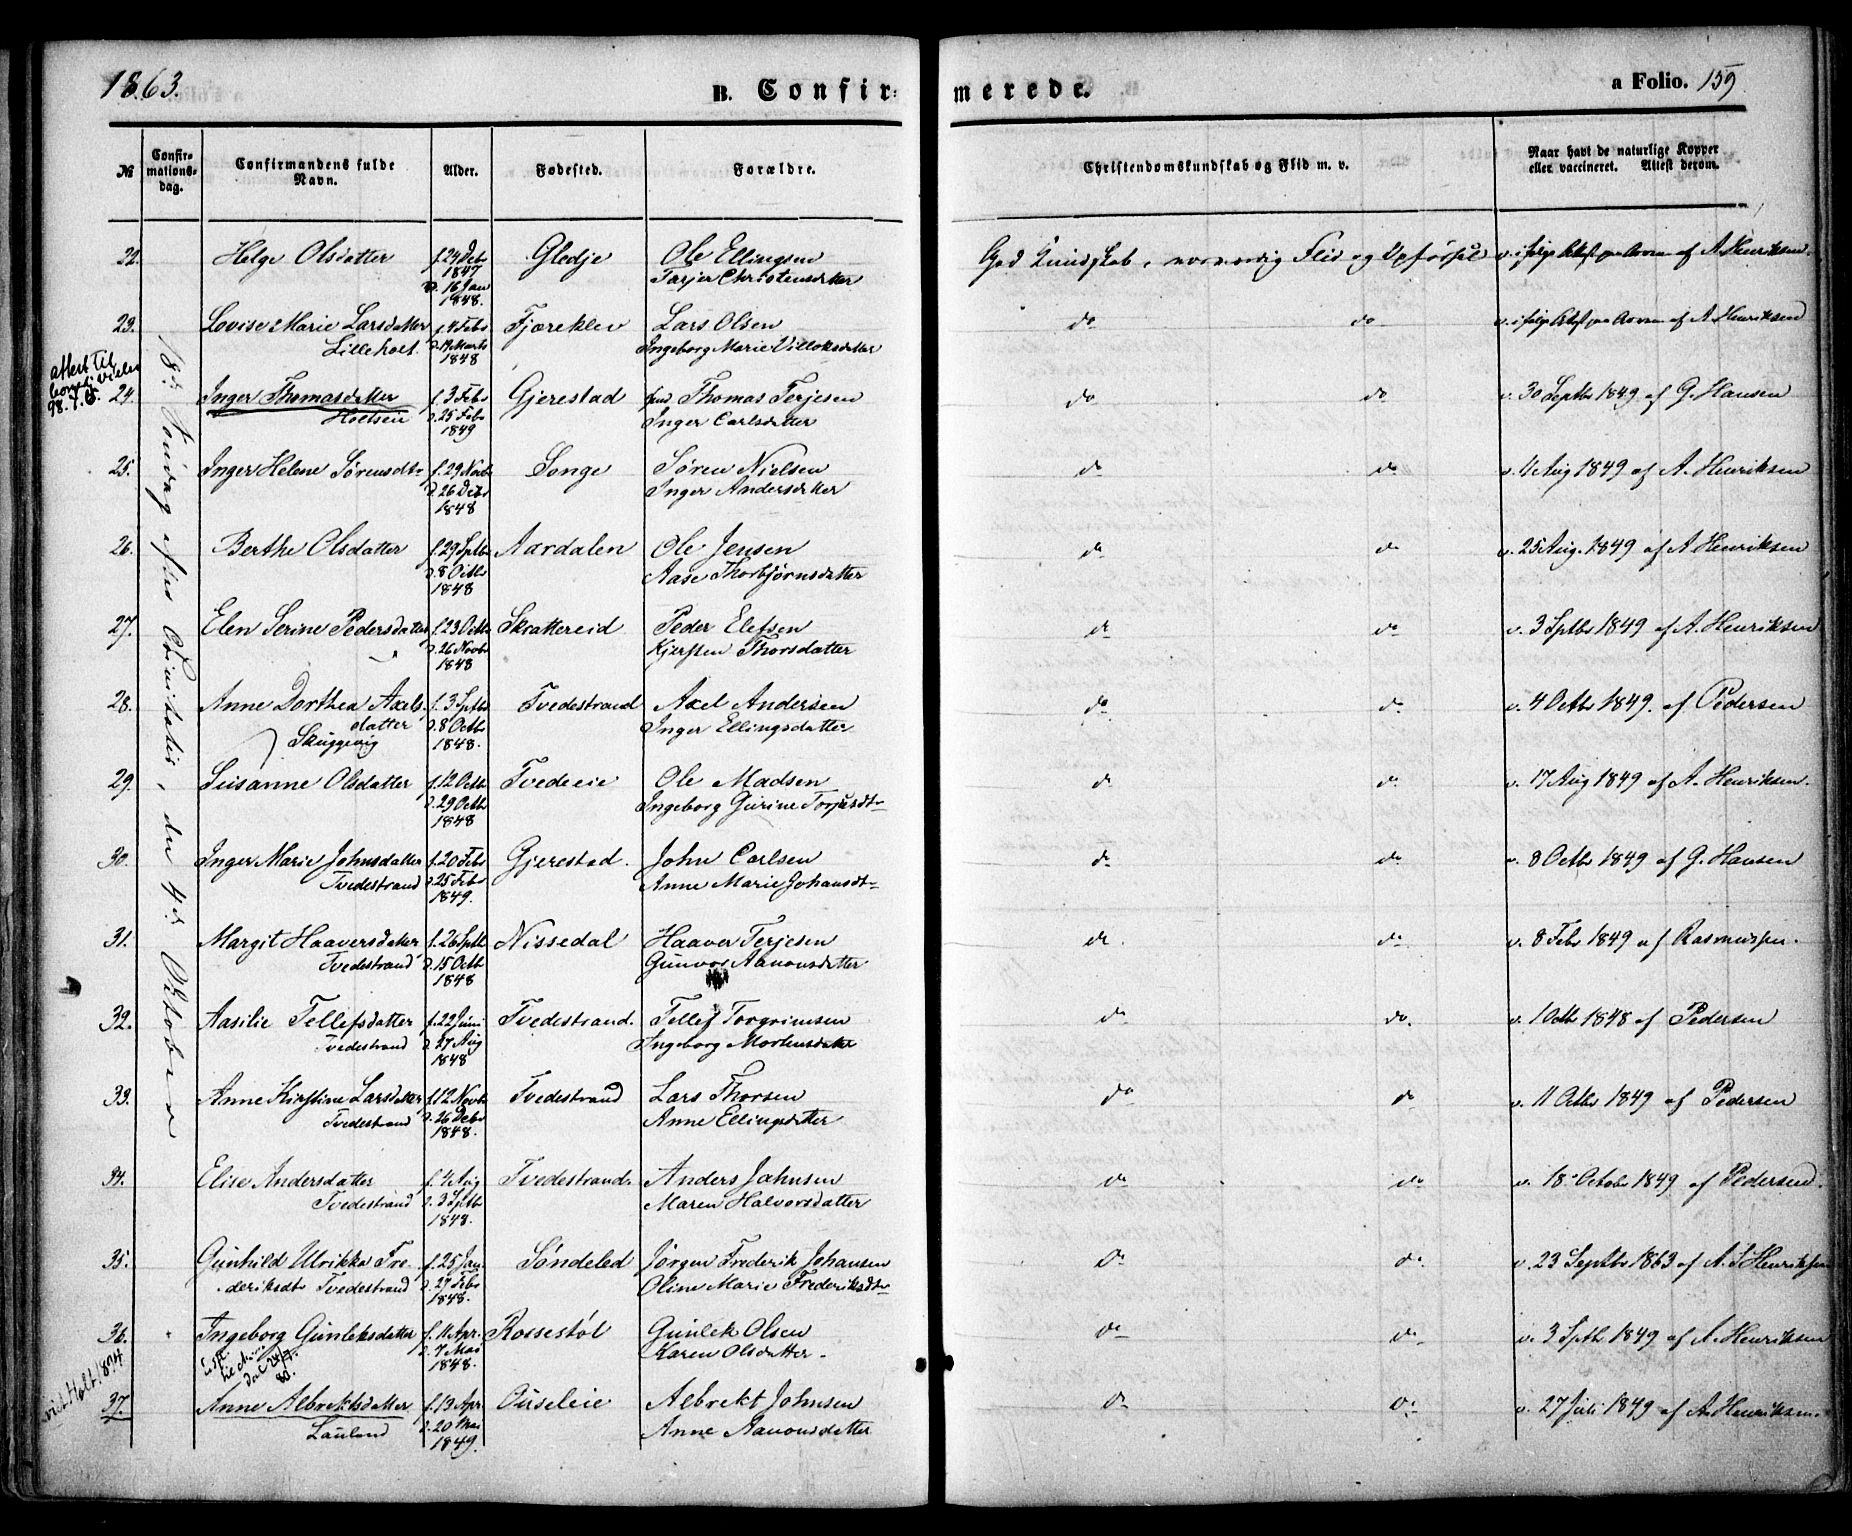 1863.
B. Confirmerede.
a Folio. 159
№ Confirmationsdag. Confirmandens fulde Navn. Alder. Fødested. Forældre. Christendomskundskab og Flid m. v. Naar havt de naturlige Kopper eller vaccineret. Attest derom.
18de Søndag efter Trinitatis, den 4de Oktober
22. Helge Olsdatter f. 24 Debr 1847 d. 16 Jan 1848. Gledje Ole Ellingsen
Tarjer Christensdatter God Kundskab, Flid og Opførsel v. ifølge Attest af A. Henriksen.
23. Lovise Marie Larsdatter f. 4 Febr d. 17 Marts 1848 Fjæreklev Lars Olsen do do v. ifølge Attest af A. Henriksen
Lilleholt. Ingeborg Marie
attest til
98.
24. Inger Thomasdatter f. 3 Febr d. 25 Febr 1849 Gjerestad Thomas Terjesen do do v. 30 Septbr 1849 af G. Hansen
Inger Carlsdatter
25. Inger Helene Sørensdtr f. 29 Novbr d. 26 Debr 1848 Songe Søren Nielsen do do v. 11 Aug 1849 af A. Henriksen
Inger Andersdatter
26. Berthe Olsdatter f. 29 Sptbr d. 8 Octbr 1848 Aardalen Ole Jensen do do v. 25 Aug. 1849 af A Henriksen
Aase Thorbjørnsdatter
27. Elen Serine Pedersdatter f. 23 Octbr d. 26 Novbr 1848 Skrattereid Peder Elefsen do do v. 3 Sptbr 1849 af A. Henriksen
Kjersten Thorsdatter
28. Anne Dorthea Axels f. 3 Sptbr d. 8 Octbr 1848. Tvedestrand Axel Andersen do do v. 4 Octbr 1849. af Pedersen
datter Inger Ellingsdatter
Skuggevig
29. Susanne Olsdatter f. 12 Octb d. 29 Octb 1848 Tvedeeie Ole Madsen do do v. 17 Aug 1849 af A. Henriksen.
Ingeborg Gurine Torjusdtr
30. Inger Marie Johnsdatter f. 20 Febr d. 25 Febr 1849. Gjerestad. John Carlsen do do v. 8 Octbr 1849 af G. Hansen
Tvedestrand Anne Marie Johansdtr
31. Margit Haaversdatter f. 26 Sptb d. 15 Octb 1848 Nissedal Haaver Terjesen do. do v. 8 Febr 1849 af Rasmussen.
Tvedestrand Gunvor Aanonsdatter
32. Aasilie Tellefsdatter f. 22 Juni d. 27 Aug 1848 Tvedestrand. Tellef Torgrimsen do do. v. 1 Octbr 1848 af Pedersen
Tvedestrand Ingeborg Mortensdatter
33. Anne Kirstine Larsdatter f. 12 Novb d. 26 Debr 1848. Tvedestrand Lars Thorsen do do v. 11 Octbr 1849 af Pedersen
Tvedestrand Anne Ellingsdatter
34. Elise Andersdatter f. 4 Aug d. 3 Sptbr 1848. Tvedestrand. Anders Jahnsen do do v. 18 Octobr 1849 af Pedersen.
Tvedestrand Maren Halvorsdatter
35. Gunhild Ulrikka Fre f. 25 Jan d. 27 Febr 1848. Søndeled Jørgen Frederik Johansen do do. v. 23 Septbr 1863 af A. S Henriksen
deriksdtr Tvedestrand Oline Marie Frederiksdtr
36. Ingeborg Gunleksdatter f. 11 Apr. d. 7 Mai 1848. Rossestøl Gunlek Olsen do do v. 3 Sptb 1849 af A. Henriksen
Karen Olsdatter.
Holt 1874
37. Anne Albrektsdatter f. 13 Apr d. 20 Mai 1849. Ouseleie Albrekt Johnsen do do. v. 27 Juli 1849 af A Henriksen.
Lauland Anne Aanonsdatter